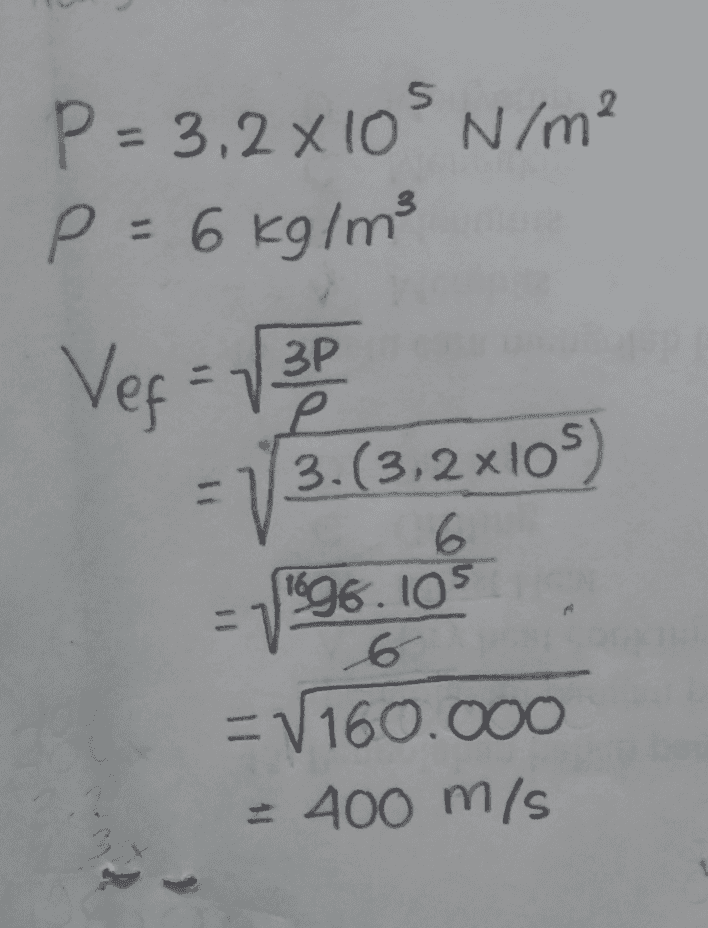 P = 3,2 x 10⁵ N/m²
ρ = 6 kg/m³
Vef = √3P/ρ
= √3.(3,2 x 10⁵)/6
= √¹⁶96.10⁵/6
= √160.000
= 400 m/s